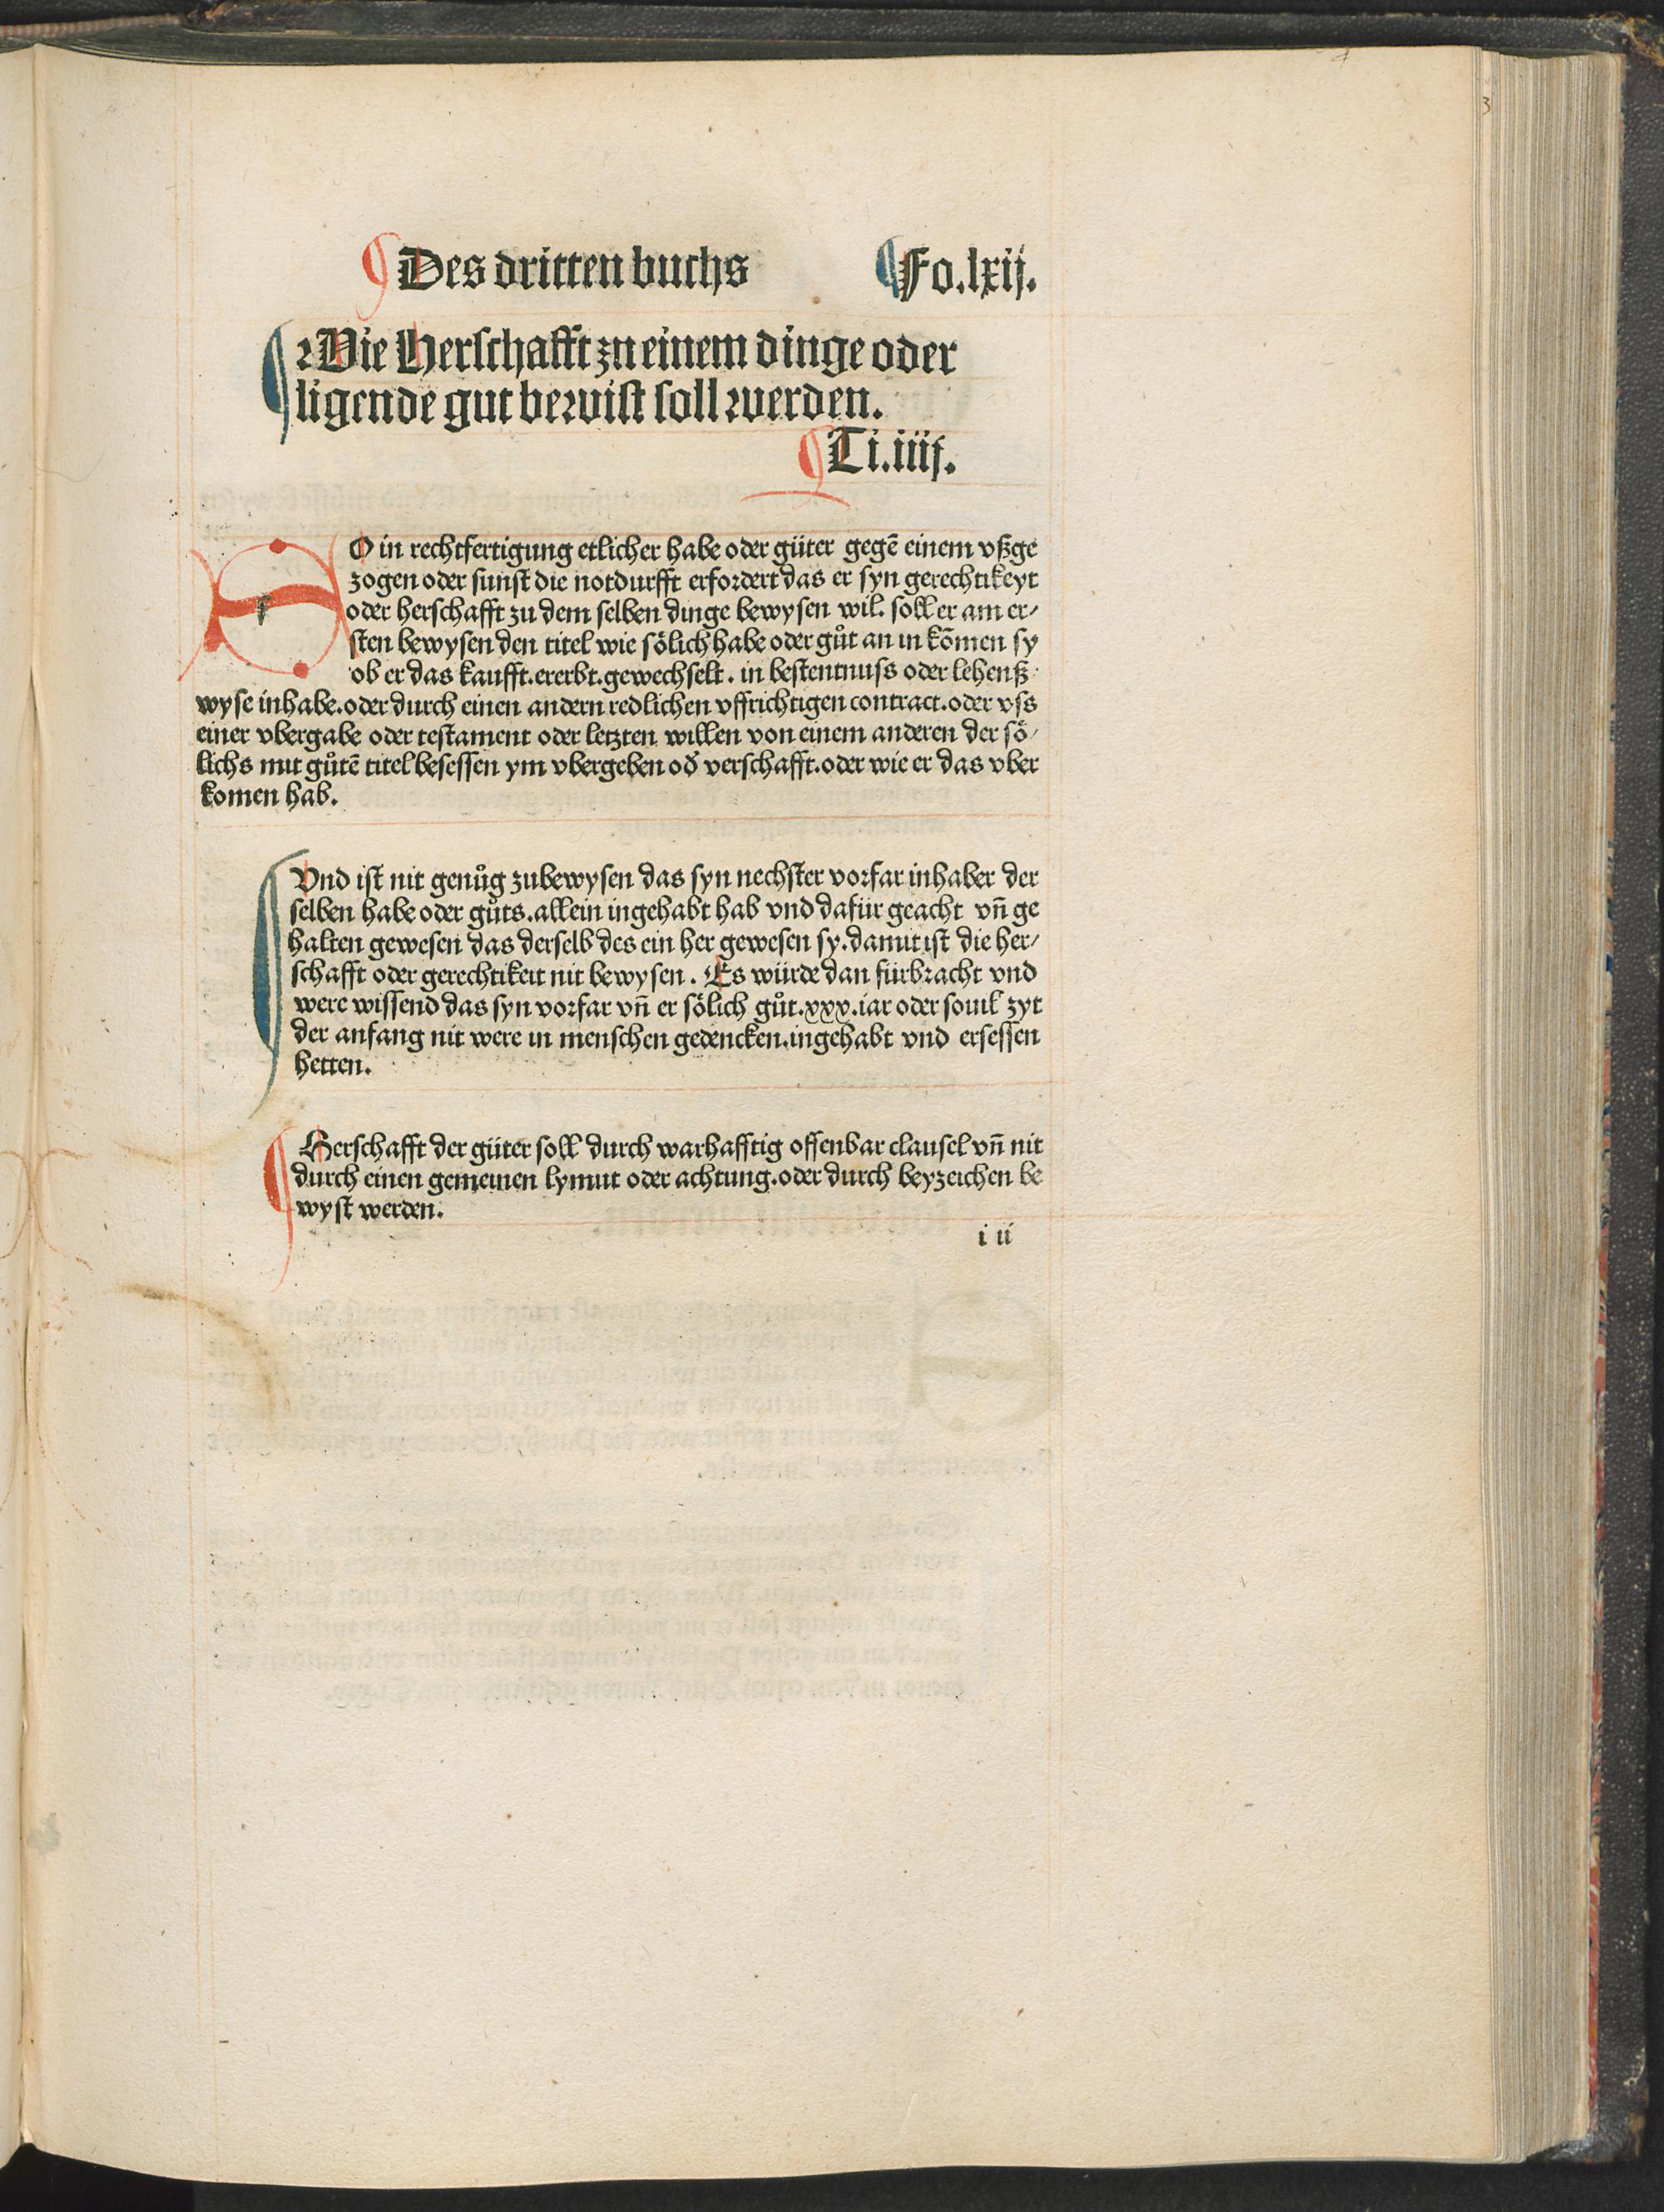 Des dritten buchs Fo.lxij.
Wie Herschafft zu einem dinge oder
ligende gut bewist soll werden.
Ti.iiij.
SO in rechtfertigung etlicher habe oder güter gegē einem vßge
zogen oder sunst die notdurfft erfordert das er syn gerechtikeyt
oder herschafft zu dem selben dinge bewysen wil. soll er am er/
sten bewysen den titel wie sölich habe oder gůt an in kōmen sy
ob er das kaufft.ererbt.gewechselt. in bestentnuss oder lehenß
wyse inhabe.oder durch einen andern redlichen vffrichtigen contract.oder vss
einer vbergabe oder testament oder letzten willen von einem anderen der sö/
lichs mit gůtē titel besessen ym vbergeben od̕ verschafft.oder wie er das vber
komen hab.
Vnd ist nit genůg zubewysen das syn nechster vorfar inhaber der
selben habe oder gůts.allein ingehabt hab vnd dafür geacht vn̄ ge
halten gewesen das derselb des ein her gewesen sy.damit ist die her/
schafft oder gerechtikeit nit bewysen. Es würde dan fürbracht vnd
were wissend das syn vorfar vn̄ er sölich gůt.xxx.iar oder souil zyt
der anfang nit were in menschen gedencken.ingehabt vnd ersessen
hetten.
Herschafft der güter soll durch warhafftig offenbar clausel vn̄ nit
durch einen gemeinen lymut oder achtung.oder durch beyzeichen be
wyst werden.
i ii